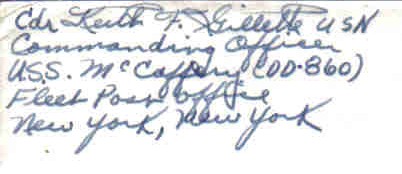 Cdr Keith F. Gillette USN
Commanding Officer
U.S.S. McCaffery (DD-860)
Fleet Post Office
New York, New York